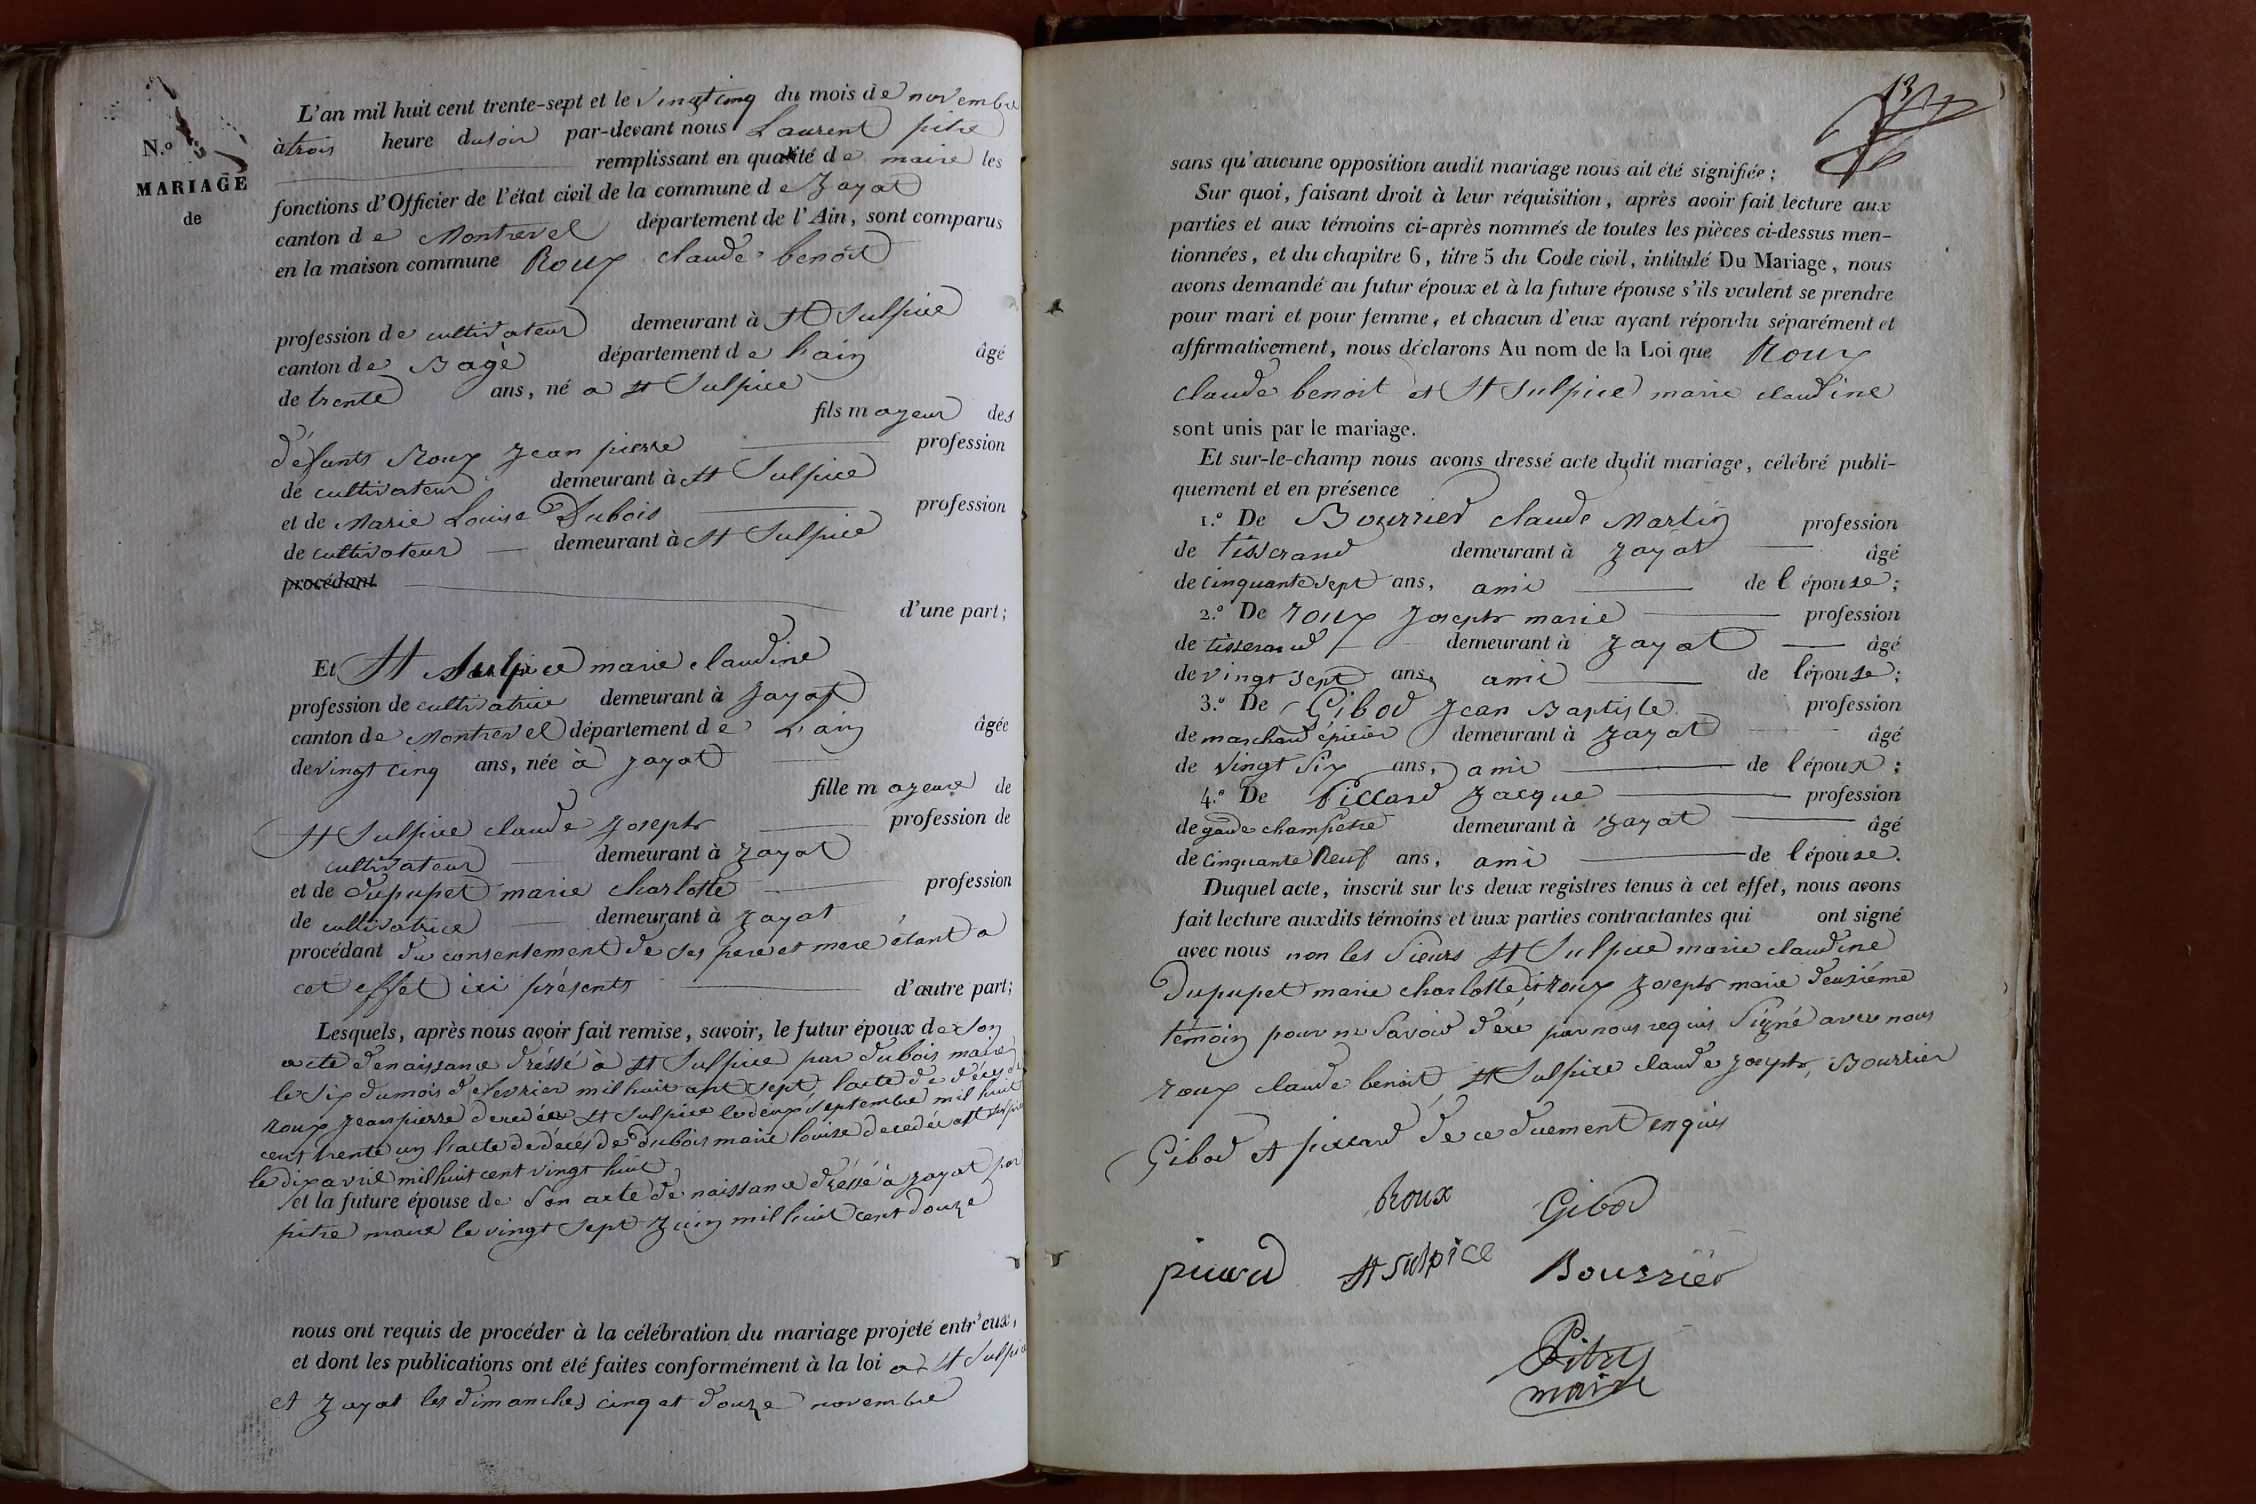 N.º
MARIAGE
de
L'an mil huit cent trente-sept et le vingt cinq du mois de novembre
à trois heure du soir par-devant nous Laurent pitre
remplissant en qualité de maire les
fonctions d'Officier de l'état civil de la commune de Jayat
canton de Montrevel département de l'Ain, sont comparus
en la maison commune Roux claude benoit
profession de cultivateur demeurant à St Sulpice
canton de Bagé département de l'ain âgé
de trente ans, né a St Sulpice
fils mayeur des
défunts Roux Jean pierre profession
de cultivateur demeurant à St Sulpice
et de Marie Louise Dubois profession
de cultivateur demeurant à St Sulpice
procédant
d'une part;
Et St Sulpice marie claudine
profession de cultivatrice demeurant à Jayat
canton de Montrevel département de L'ain âgée
de vingt cinq ans, née à Jayat
fille mayeure de
St Sulpice claude Joseph profession de
cultivateur demeurant à Jayat
et de dupupet marie charlotte profession
de cultivatrice demeurant à Jayat
procédant du consentement de ses pere et mere étant a
cet effet ici présents d'autre part;
Lesquels, après nous avoir fait remise, savoir, le futur époux de son
acte de naissance dréssé à St Sulpice par dubois maire
le Six du mois de fevrier mil huit cent sept, l'acte de décès de
roux Jean pierre decedé a St Sulpice le deux septembre mil huit
cent trente un l'acte de décès de dubois marie louise decedée a St Sulpice
le dix avril mil huit cent vingt huit
et la future épouse de Son acte de naissance dréssé à Jayat par
pitre maire le vingt sept Juin mil huit cent douze
nous ont requis de procéder à la célébration du mariage projeté entr'eux,
et dont les publications ont été faites conformément à la loi a St Sulpice
et Jayat les dimanches cinq et douze novembre
13
sans qu'aucune opposition audit mariage nous ait été signifiée;
Sur quoi, faisant droit à leur réquisition, après avoir fait lecture aux
parties et aux témoins ci-après nommés de toutes les pièces ci-dessus men-
tionnées, et du chapitre 6, titre 5 du Code civil, intitulé Du Mariage, nous
avons demandé au futur époux et à la future épouse s'ils veulent se prendre
pour mari et pour femme, et chacun d'eux ayant répondu séparément et
affirmativement, nous déclarons Au nom de la Loi que Roux
claude benoit et St Sulpice marie claudine
sont unis par le mariage.
Et sur-le-champ nous avons dressé acte dudit mariage, célébré publi-
quement et en présence
1.º De Bourrier claude Martin profession
de tisserand demeurant à Jayat âgé
de cinquante sept ans, ami de l épouse;
2.º De roux Joseph marie profession
de tisserand demeurant à Jayat âgé
de vingt sept ans, ami de l'épouse;
3.º De Gibod Jean Baptiste profession
de marchand épicier demeurant à Jayat âgé
de vingt Six ans, ami de l époux;
4.º De Piccard Jacque profession
de garde champetre demeurant à Jayat âgé
de cinquante neuf ans, ami de l épouse.
Duquel acte, inscrit sur les deux registres tenus à cet effet, nous avons
fait lecture auxdits témoins et aux parties contractantes qui ont signé
avec nous non les Sieurs St Sulpice marie claudine
Dupupet marie charlotte et roux Joseph marie deuxiéme
témoin pour ne Savoir de ce par nous requis Signé avec nous
roux claude benoit St Sulpice claude Joseph, Bourrier
Gibod et piccard de ce duement enquis
Roux Gibod
picard St Sulpice Bourrier
Pitre
maire